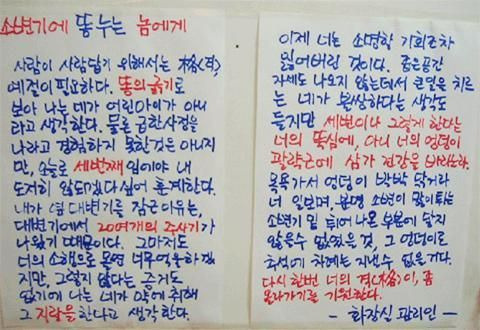 소변기에 똥 누는 놈에게
사람이 사람답기 위해서는 格(격),
예절이 필요하다. 똥의 굵기로
보아 나는 네가 어린아이가 아니
라고 생각한다. 물론 급한사정을
나라고 경험하지 못한것은 아니지
만, 오늘로 세번째 임에야 내
도저히 안되겠다 싶어 훈계한다.
내가 옆 대변기를 잠근 이유는,
대변기에서 20여개의 주사기가
나왔기 때문이다. 그마저도
너의 소행으로 몰면 너무억울하겠
지만, 그렇지 않다는 증거도
없기에 나는 네가 약에 취해
그 지랄을 한다고 생각한다.
이제 너는 소명할 기회조차
잃어버린 것이다. 좁은공간
자세도 나오지 않는데서 큰일을 치르
는 네가 환상하다는 생각도
들지만 세번이나 그렇게 한다는
너의 똑심에, 아니 너의 엉덩이
괄약근에 삼가 건강을 바라노라.
목욕가서 엉덩이 박박 닦거라
너 일보며, 분명 소변이 많이튀는
소변기 밑 튀어 나온 부분에 닿지
않을수 없었을 것, 그 엉덩이로
추석에 차례는 지내수 없을 거다.
다시 한번 너의 격(格)이, 좀
올라가기를 기원한다.
- 화장실 관리인 -